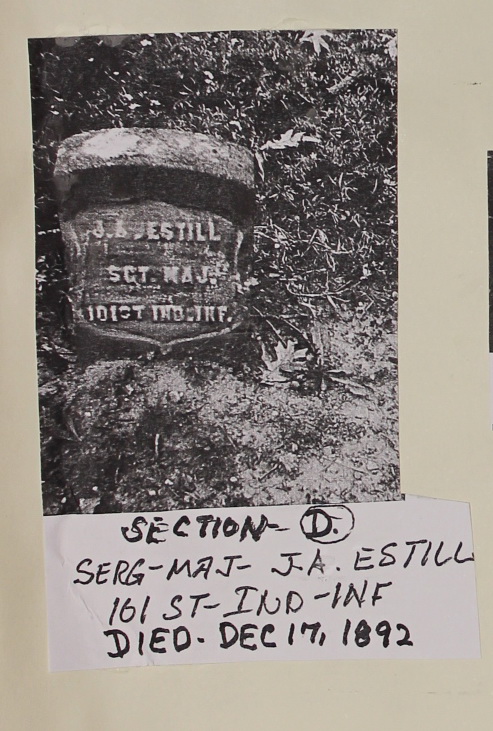 J.A. ESTILL
SGT. MAJ.
101ST IND. INF.
SECTION- D.
SERG-MAJ- J.A. ESTILL
101 ST-IND-INF
DIED- DEC 17, 1892